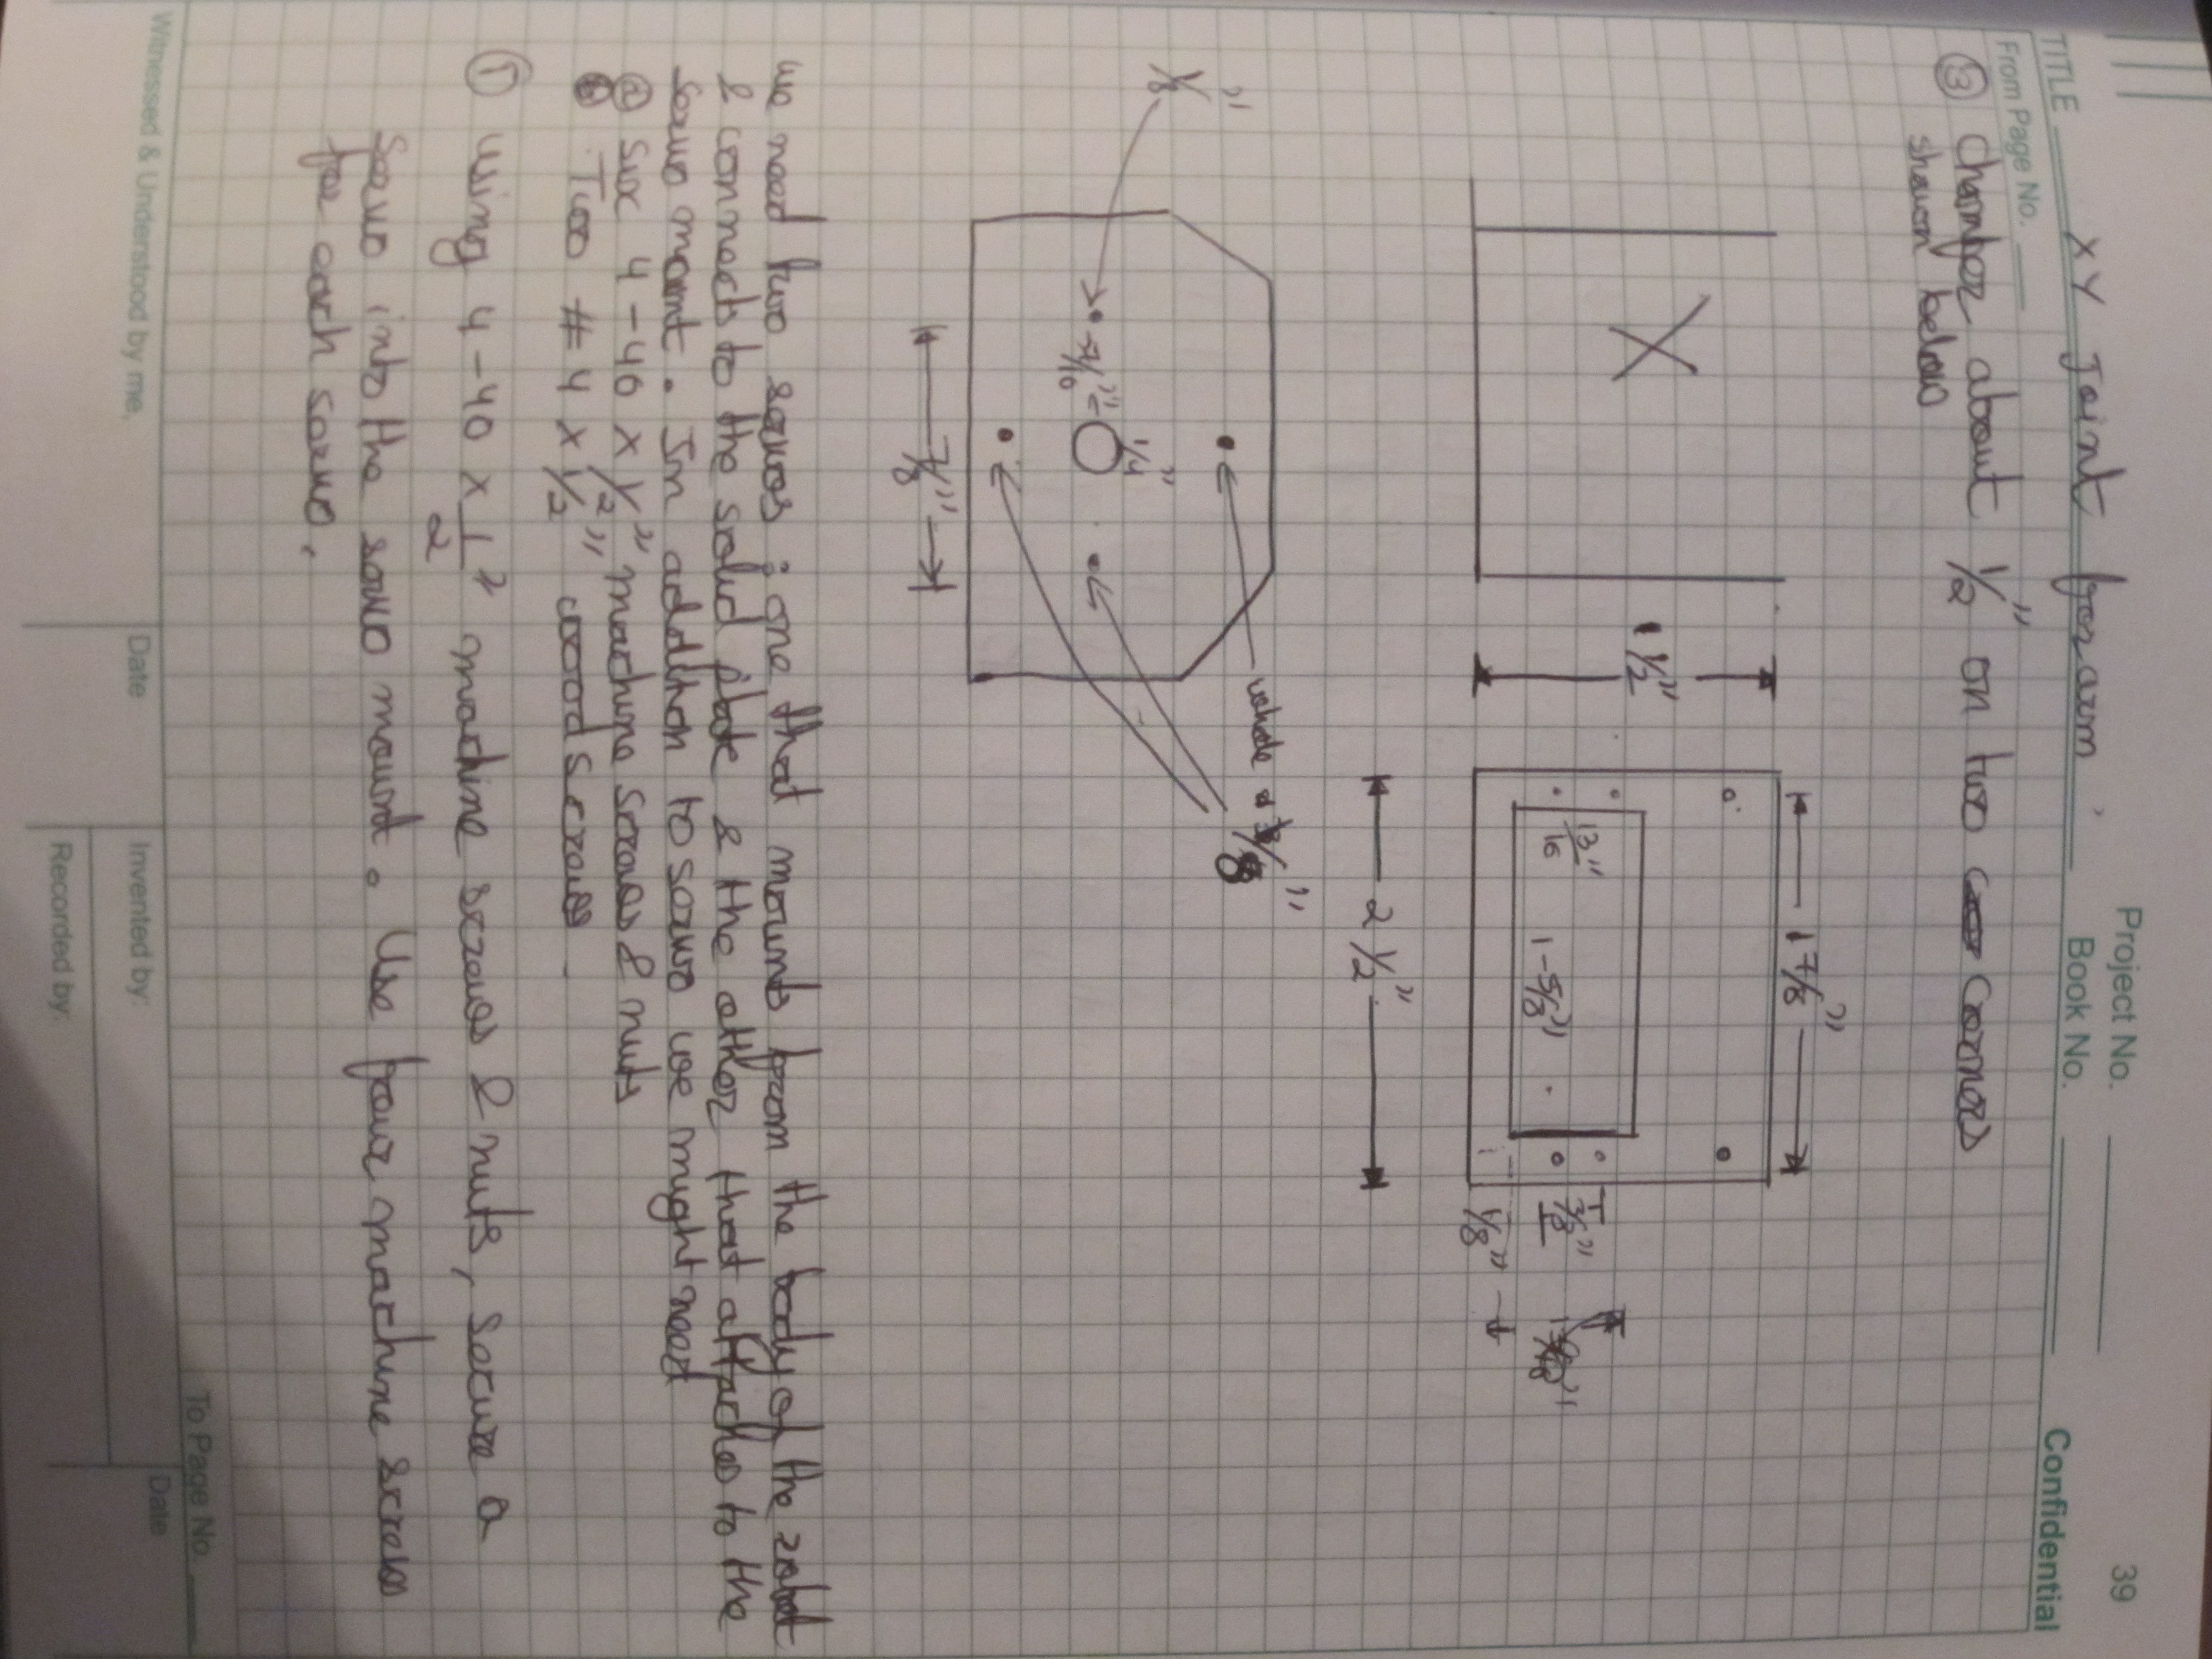 39
Project No.
Book No.
Confidential
TITLE XY Joint for arm
From Page No.
③ Chamfer about 1/2" on two corners
shown below
1 7/8"
X
1 1/2"
13"/16
1-5/8"
3/8"
1/8"
2 1/2"
whole a /8"
1/8"
1/4"
7/16"
7/8"
we need two servos : one that mounts from the body of the robot
& connects to the solid plate & the other that attaches to the
servo mount. In addition to servo we might need
Six 4-40 x 1/2" machine screws & nuts
Two #4 x 1/2" wood screws
① Using 4-40 x 1/2" machine screws & nuts, secure a
servo into the servo mount. Use four machine screws
for each servo.
To Page No.
Witnessed & Understood by me,
Date
Invented by:
Date
Recorded by: